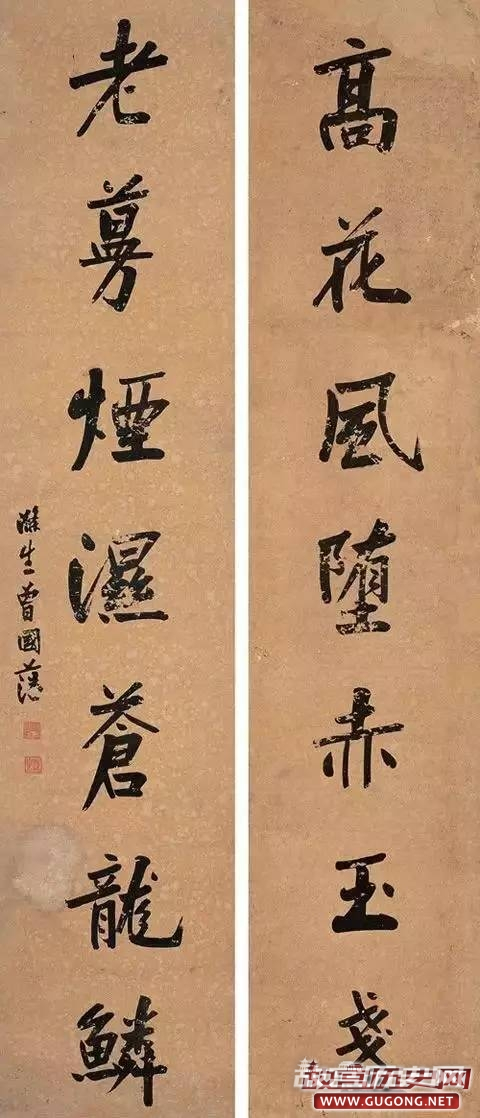 高花風堕赤玉盞
老蔓煙濕蒼龍鱗
滌生曾國藩
故宫历史网
WWW.GUGONG.NET